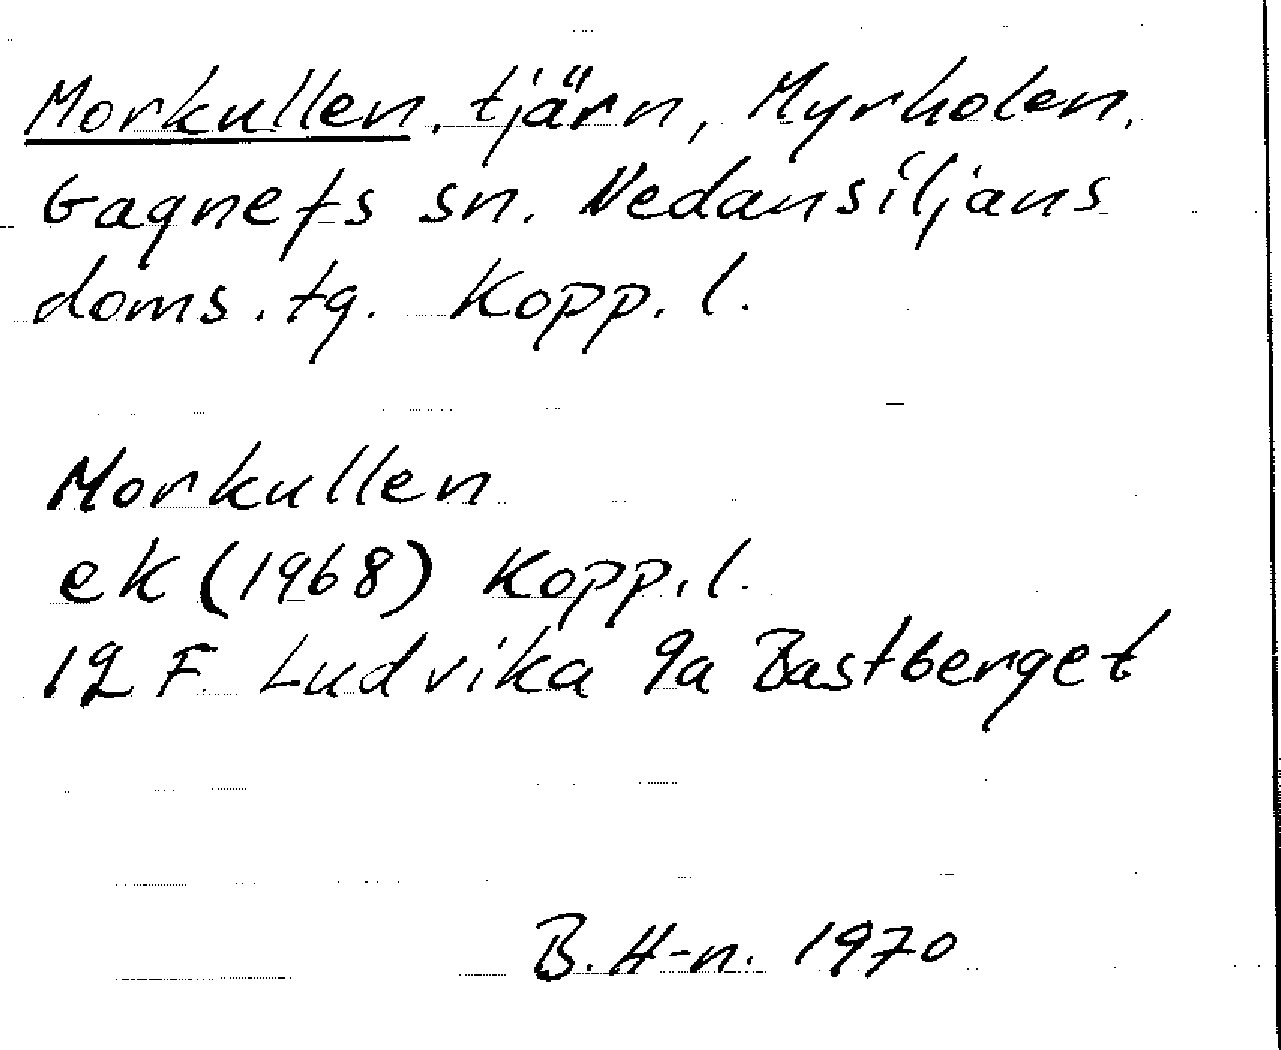 Morkullen, tjärn, Myrholen,
Gagnefs sn. Nedansiljans
doms. tg. Kopp. l.
Morkullen
ek (1968) Kopp. l.
12 F. Ludvika 9a Bastberget
B. H-n. 1970